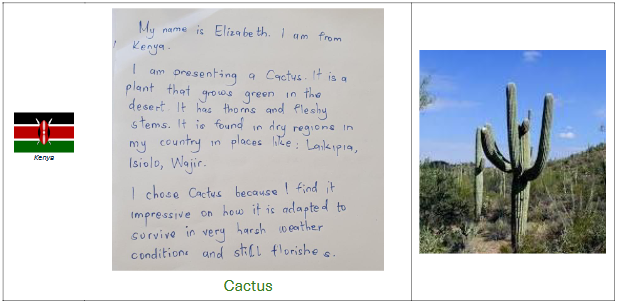 My name is Elizabeth. I am from
Kenya.
I am presenting a Cactus. It is a
plant that grows green in the
desert. It has thorns and fleshy
stems. It is found in dry regions in
my country in places like: Laikipia,
Isiolo, Wajir.
I chose Cactus because I find it
impressive on how it is adapted to
survive in very harsh weather
conditions and still florishes.
Kenya
Cactus